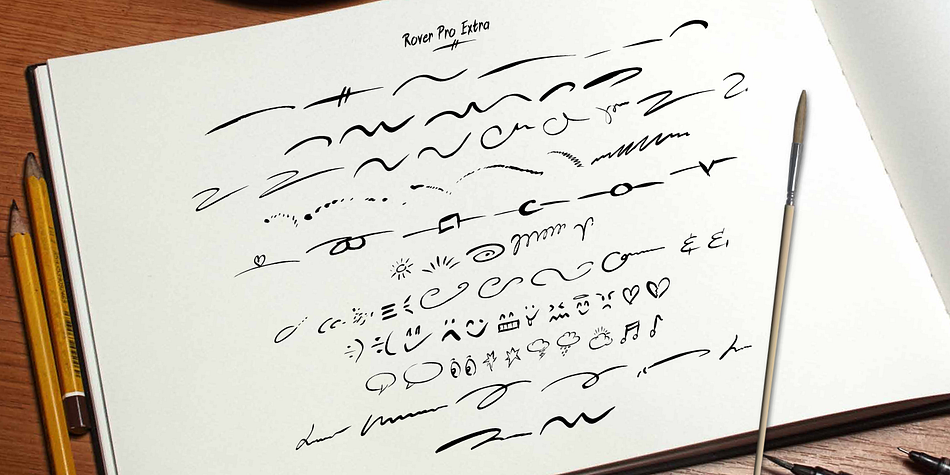 Rover Pro Extra
& &